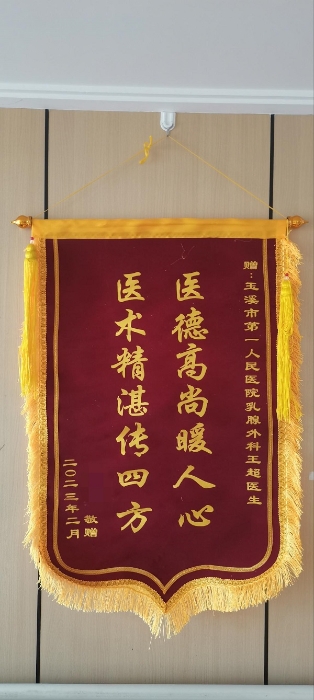 赠：玉溪市第一人民医院乳腺外科王超医生
医德高尚暖人心
医术精湛传四方
敬赠
二〇二三年二月